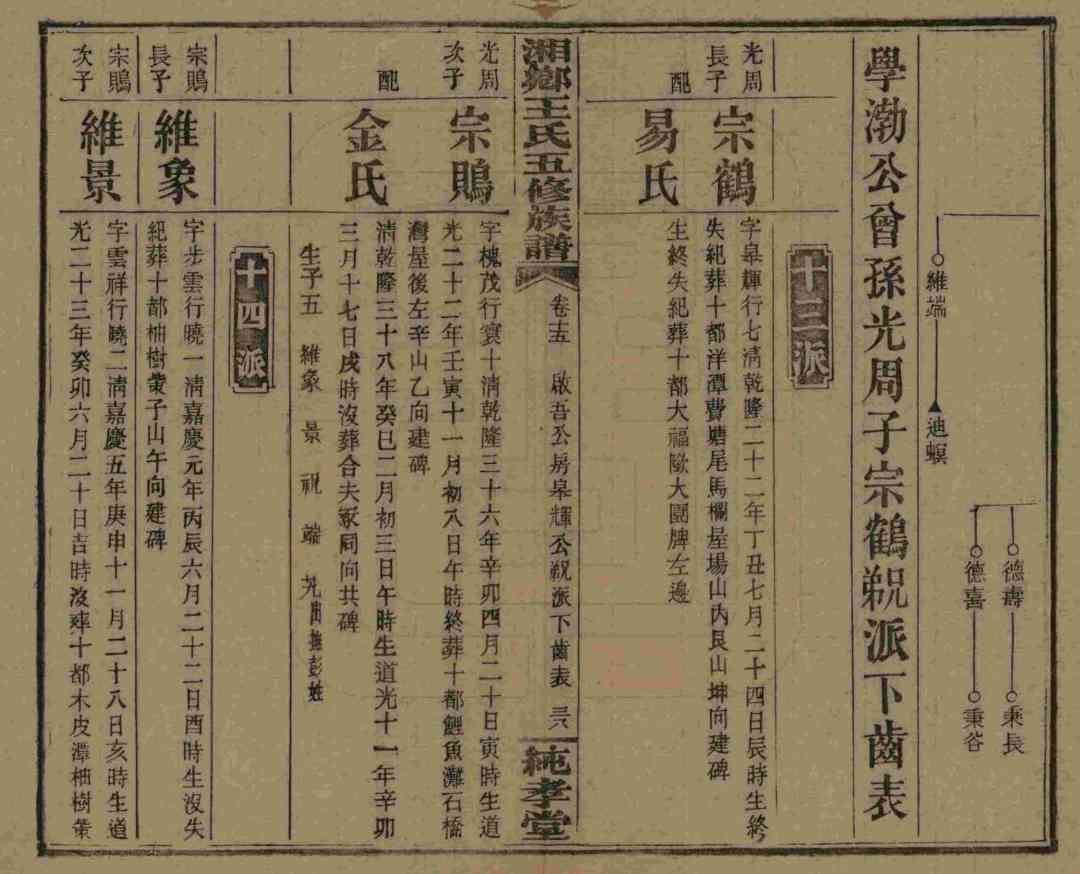 維端
迪螟
德壽
秉長
德喜
秉谷
學渤公曾孫光周子宗鶴鵝派下齒表
十三派
光周
長子
宗鶴
字皐輝行七淸乾隆二十二年丁丑七月二十四日辰時生終
失紀葬十都洋潭費塘尾馬欄屋塲山內艮山坤向建碑
配
易氏
生終失紀葬十都大福歐大園牌左邊
湘鄉王氏五修族譜
卷十五
啟吾公房皐輝公鵝派下齒表
純孝堂
光周
次子
宗鵙
字槐茂行寰十淸乾隆三十六年辛卯四月二十日寅時生道
光二十二年壬寅十一月初八日午時終葬十都鯉魚灘石橋
灣屋後左辛山乙向建碑
配
金氏
淸乾隆三十八年癸巳二月初三日午時生道光十一年辛卯
三月十七日戌時沒葬合夫冢同向共碑
生子五 維象 景 祝 端 光出撫彭姓
十四派
宗鵙
長子
維象
字步雲行曉一淸嘉慶元年丙辰六月二十二日酉時生沒失
紀葬十都柚樹巷子山午向建碑
宗鵙
次子
維景
字雲祥行曉二淸嘉慶五年庚申十一月二十八日亥時生道
光二十三年癸卯六月二十日吉時沒葬十都木皮潭柚樹巷